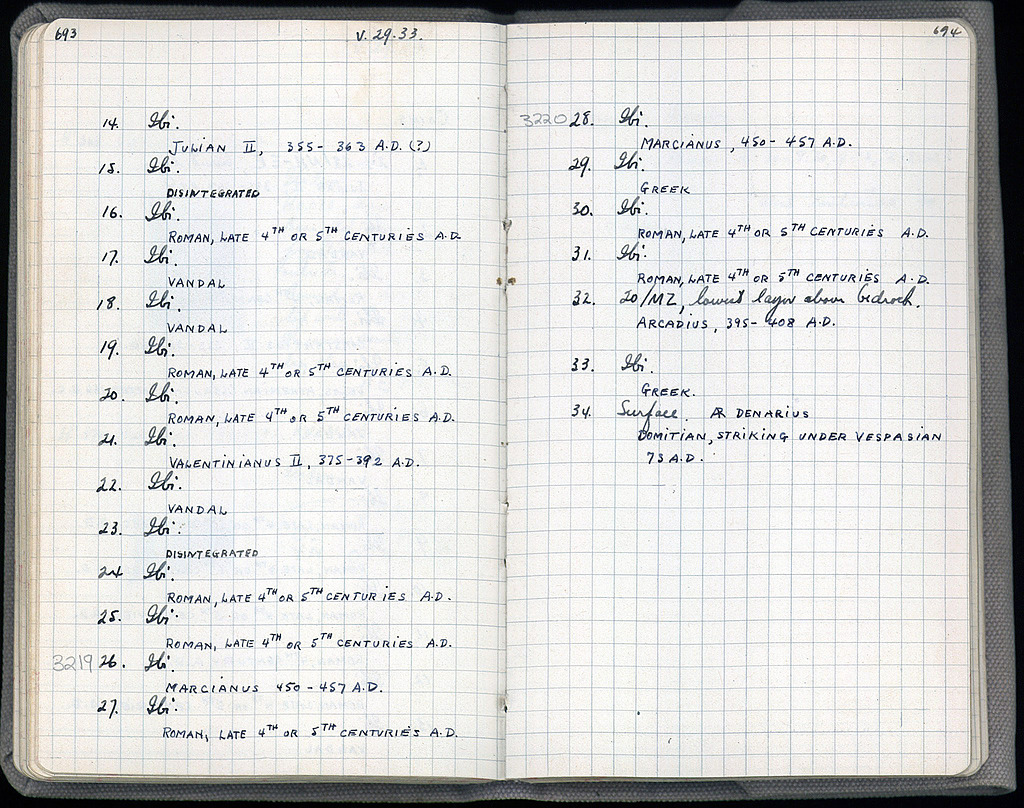 693
V. 29. 33.
14. Ibi.
JULIAN II, 355- 363 A.D. (?)
15. Ibi.
DISINTEGRATED
16. Ibi.
ROMAN, LATE 4TH OR 5TH CENTURIES A.D.
17. Ibi.
VANDAL
18. Ibi.
VANDAL
19. Ibi.
ROMAN, LATE 4TH OR 5TH CENTURIES A.D.
20. Ibi.
ROMAN, LATE 4TH OR 5TH CENTURIES A.D.
21. Ibi.
VALENTINIANUS II, 375-392 A.D.
22. Ibi.
VANDAL
23. Ibi.
DISINTEGRATED
24 Ibi.
ROMAN, LATE 4TH OR 5TH CENTURIES A.D.
25. Ibi.
ROMAN, LATE 4TH OR 5TH CENTURIES A.D.
3219 26. Ibi.
MARCIANUS 450-457 A.D.
27. Ibi.
ROMAN, LATE 4TH OR 5TH CENTURIES A.D.
694
3220 28. Ibi.
MARCIANUS, 450- 457 A.D.
29. Ibi.
GREEK
30. Ibi.
ROMAN, LATE 4TH OR 5TH CENTURIES A.D.
31. Ibi.
ROMAN, LATE 4TH OR 5TH CENTURIES A.D.
32. 20/MZ, lowest layer above bedrock.
ARCADIUS, 395- 408 A.D.
33. Ibi.
GREEK.
34. Surface. AR DENARIUS
DOMITIAN, STRIKING UNDER VESPASIAN
73 A.D.